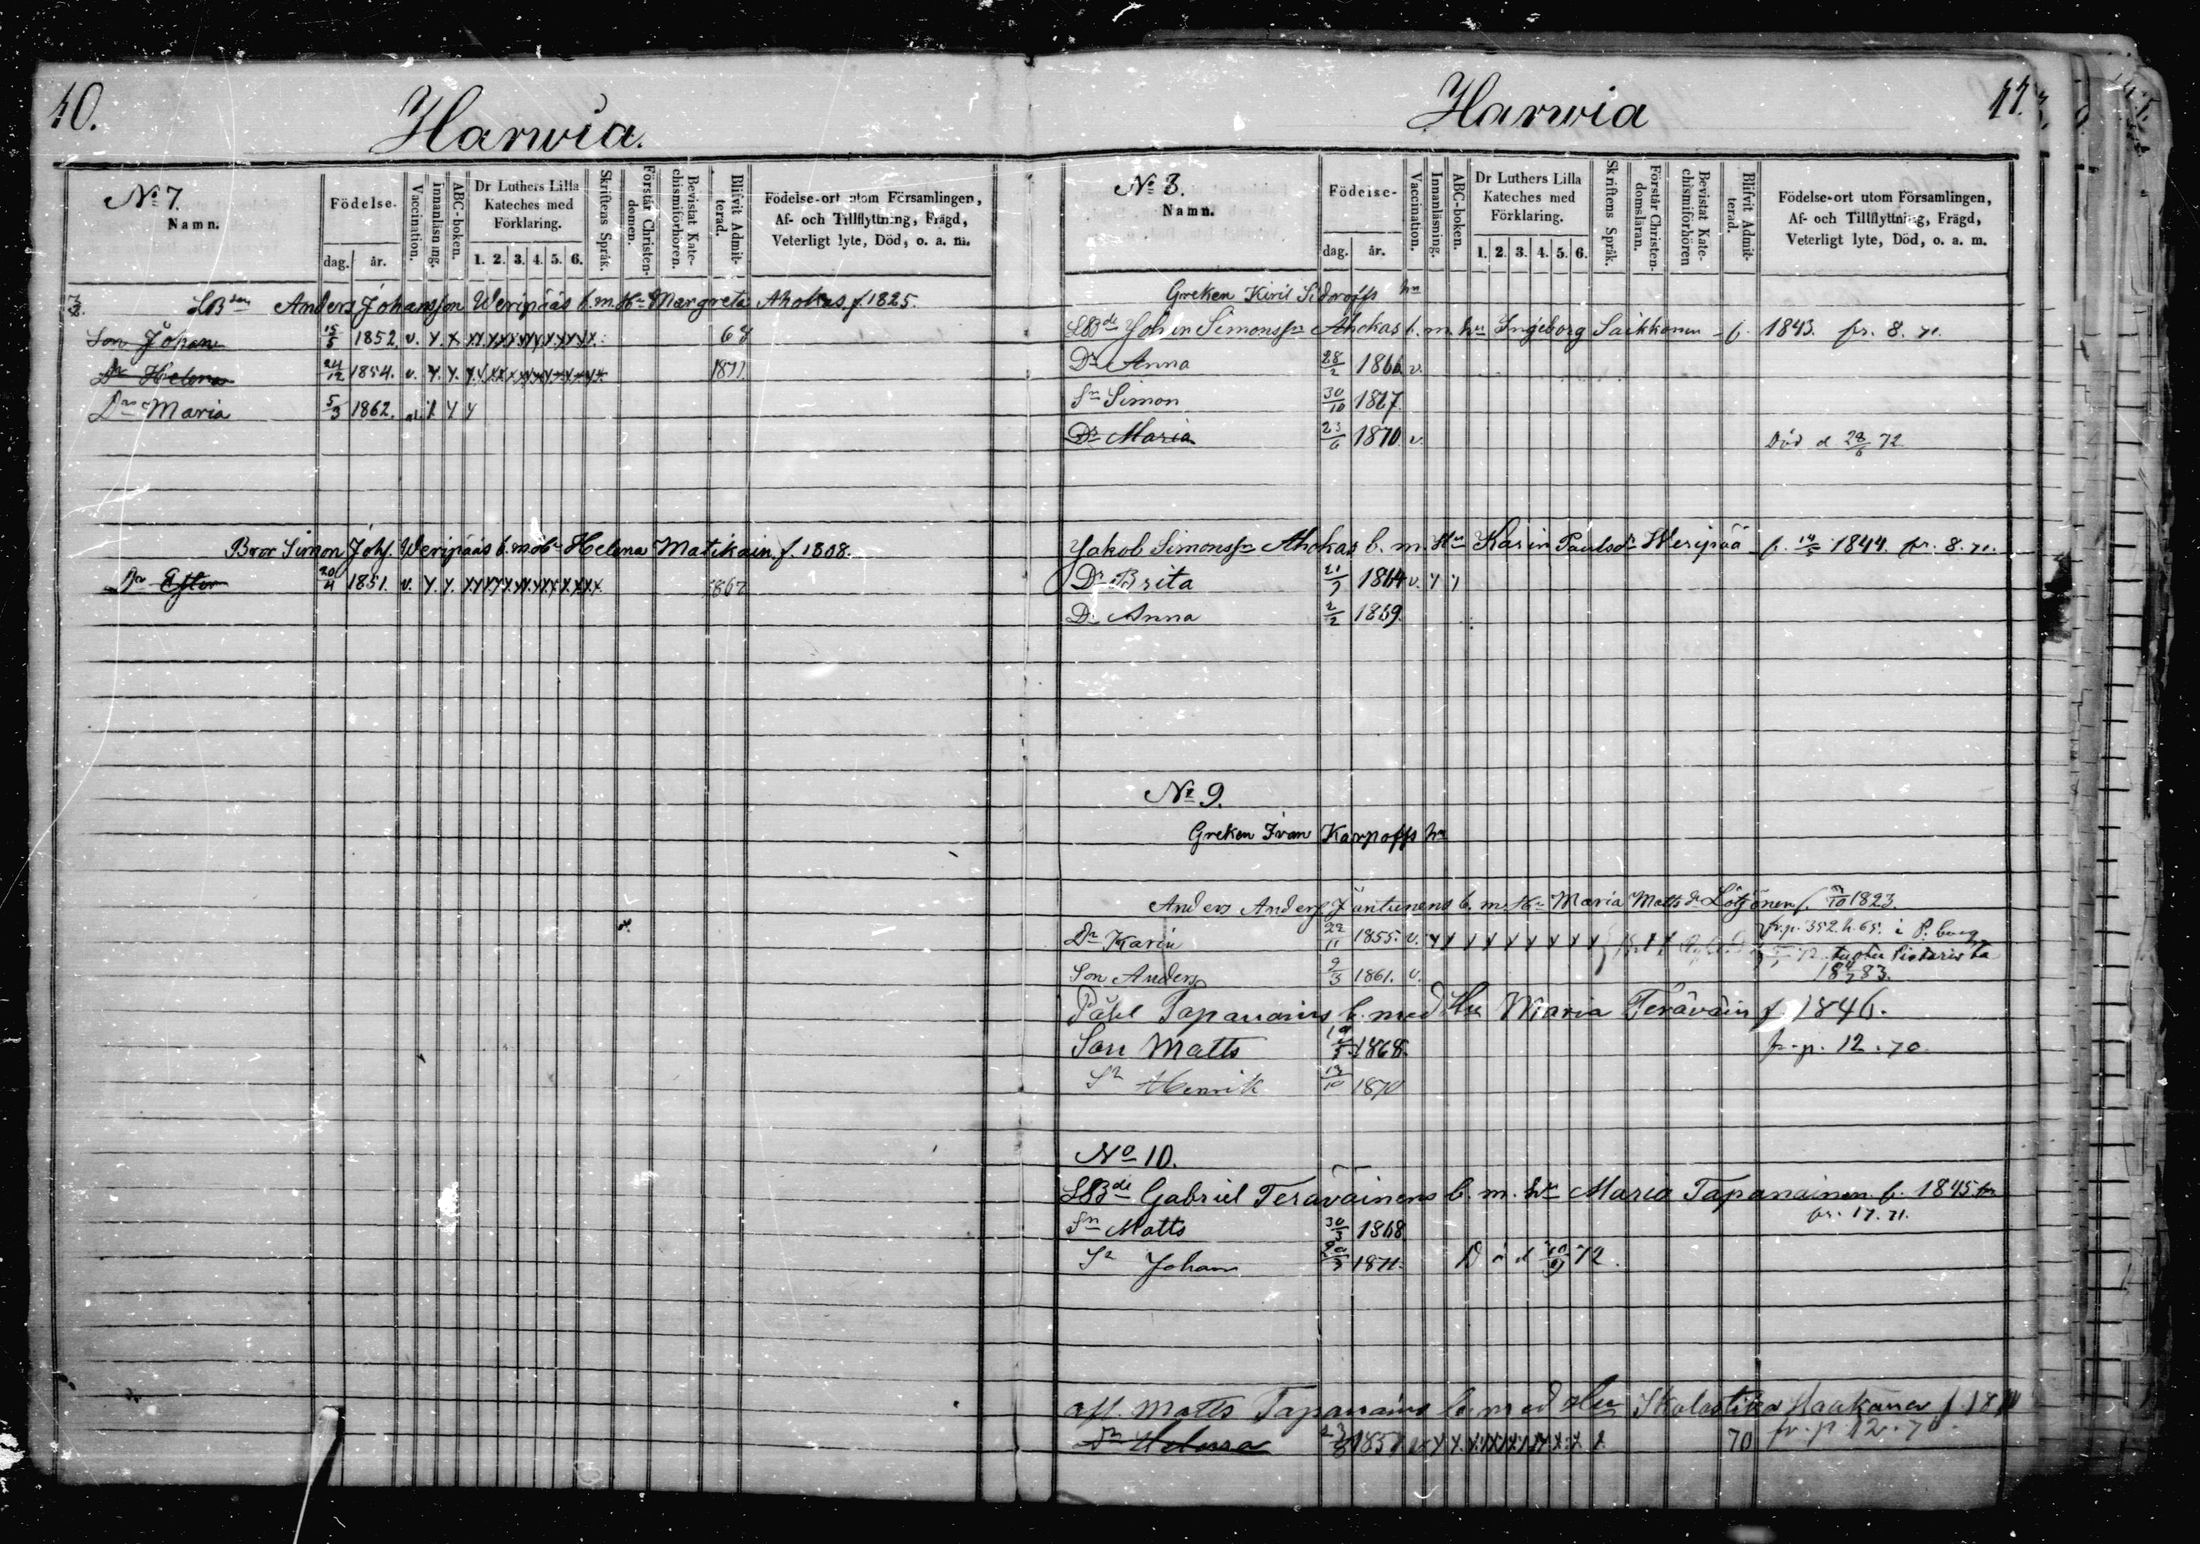 40.
Harwia.
No 7.
Namn.
Födelse.
dag. år.
Vaccination.
innanläsning.
ABC-boken.
Dr Luthers Lilla Kateches med Förklaring.
1. 2. 3. 4. 5. 6.
Skriftens Språk.
Förstår Christendomen.
Bevistat Katechismiförhören.
Blifvit Admitterad.
Födelse-ort utom Församlingen,
Af- och Tillflyttning, Frägd,
Veterligt lyte, Död, o. a. m.
LBden Anders Johansson Weripääs b. m. Hu Margreta Ahokas f. 1825.
Son Johan 15/5 1852. v. x x x x x x x x x x x x 68
Dr Helena 24/12 1854. v. x. x. x x x x x x x x x x 1871.
Dr Maria 5/3 1862. v. x x x
Bror Simon Joh. Weripääs b. m. Hu Helena Matikain. f. 1808.
Dr Ester 20/4 1851. v. x. x. x x x x x x x x x x 1867
41.
Harwia
No 8.
Namn.
Födelse-
dag. år.
Vaccination.
Innanläsning.
ABC-boken.
Dr Luthers Lilla Kateches med Förklaring.
1. 2. 3. 4. 5. 6.
Skriftens Språk.
Förstår Christendomsläran.
Bevistat Katechismiförhören
Blifvit Admitterad.
Födelse-ort utom Församlingen,
Af- och Tillflyttning, Frägd,
Veterligt lyte, Död, o. a. m.
Greken Kiril Sidoroffs hn
LBde Johan Simonssn Ahokas b. m. hu Ingeborg Saikkonen - f. 1843. fr. 8. 71.
Dr Anna 28/2 1866 v.
Sn Simon 30/10 1867.
Dr Maria 23/6 1870 v. Död d 28/6 72
Jakob Simonssn Ahokas b. m. Hu Karin Paulsdr Weripää f. 14/5 1844. fr. 8. 71.
Dr Brita 21/7 1864 v. x x
Dr Anna 2/2 1869.
No 9.
Greken Ivan Karpoffs hn
Anders Anderss Jäntunens b. m. Hu Maria Matts dr Lötjönen f. /10 1823.
Dr Karin 22/11 1855. v. x x x x x x x x x fr. p. 352. h. 65. i P. burg
Son Anders 9/3 1861. v. 83.
Påhl Tapanains b. med Hu Maria Teräväin f. 1846.
Son Matts 1868. fr. p. 12. 70.
Sn Henrik /10 1870
No 10.
LBde Gabriel Teräväinens b. m. hu Maria Tapanainen f. 1845
fr. 17. 71.
Sn Matts 30/3 1868
Sn Johan 20/3 1871. Död 72.
afl. Matts Tapanains b. med Hu Skolastika Haakana f. 18
Dr Helena 70 fr. p. 12. 70